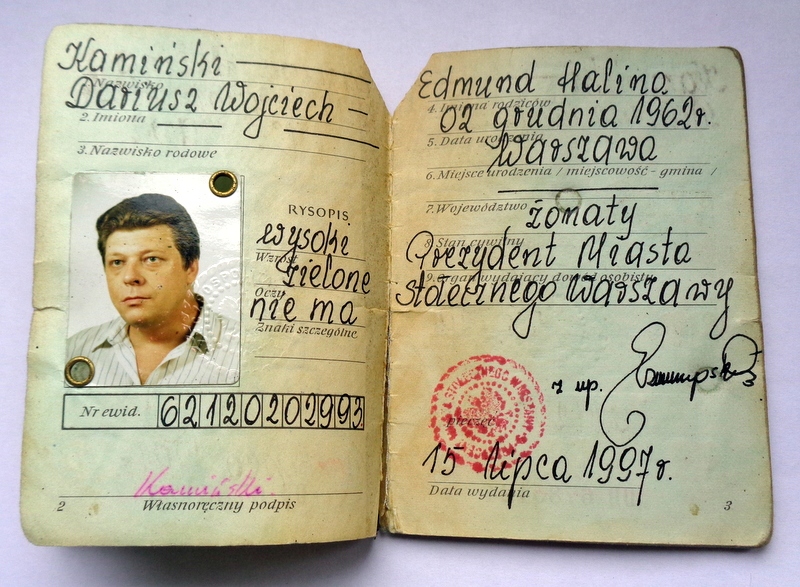 Kamiński
1. Nazwisko
Dariusz Wojciech
2. Imiona
3. Nazwisko rodowe
RYSOPIS
wysoki
Wzrost
zielone
Oczy
nie ma
Znaki szczególne
Nr ewid. 62120202993
Kamiński
Własnoręczny podpis
2
Edmund Halina
4. Imiona rodziców
02 grudnia 1962r.
5. Data urodzenia
Warszawa
6. Miejsce urodzenia / miejscowość - gmina /
7. Województwo
żonaty
8. Stan cywilny
Prezydent Miasta
9. Organ wydający dowód osobisty
stołecznego Warszawy
z up.
pieczęć
15 lipca 1997r.
Data wydania
3